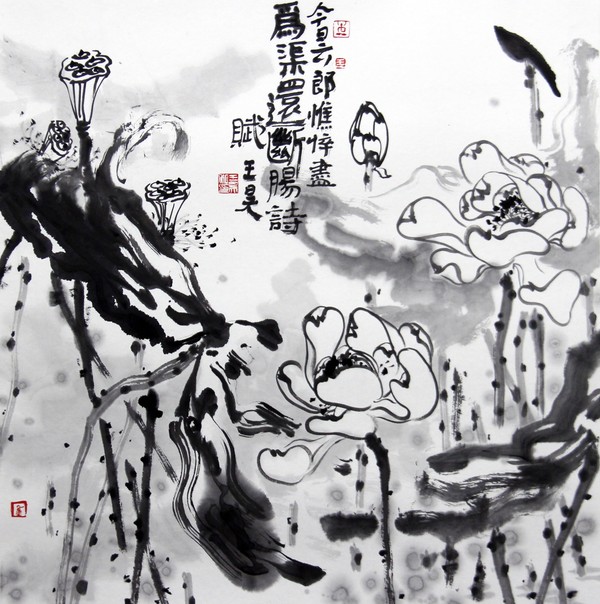 今日六郎憔悴盡
爲渠還斷腸詩
賦 王昊